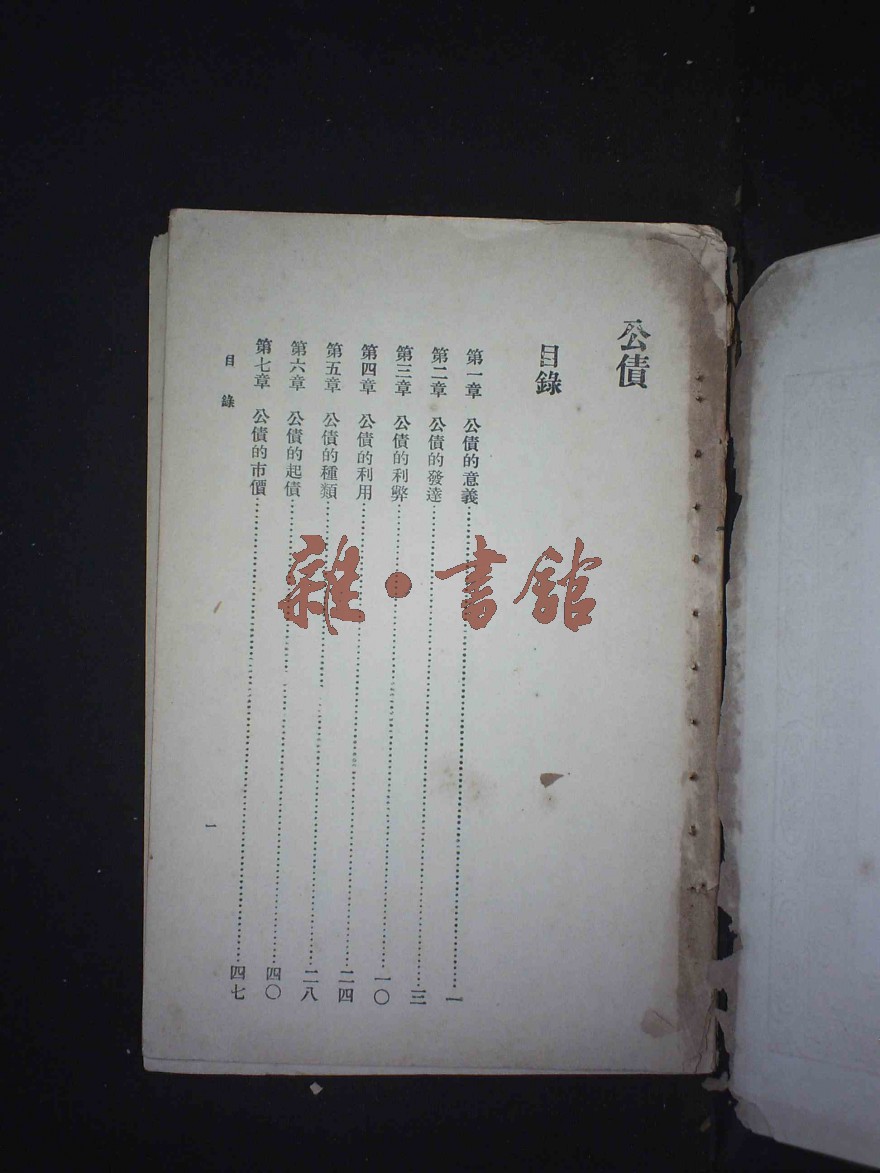 公債
目錄
第一章 公債的意義……一
第二章 公債的發達……三
第三章 公債的利弊……一〇
第四章 公債的利用……二四
第五章 公債的種類……二八
第六章 公債的起債……四〇
第七章 公債的市價……四七
目錄
一
雜·書舘